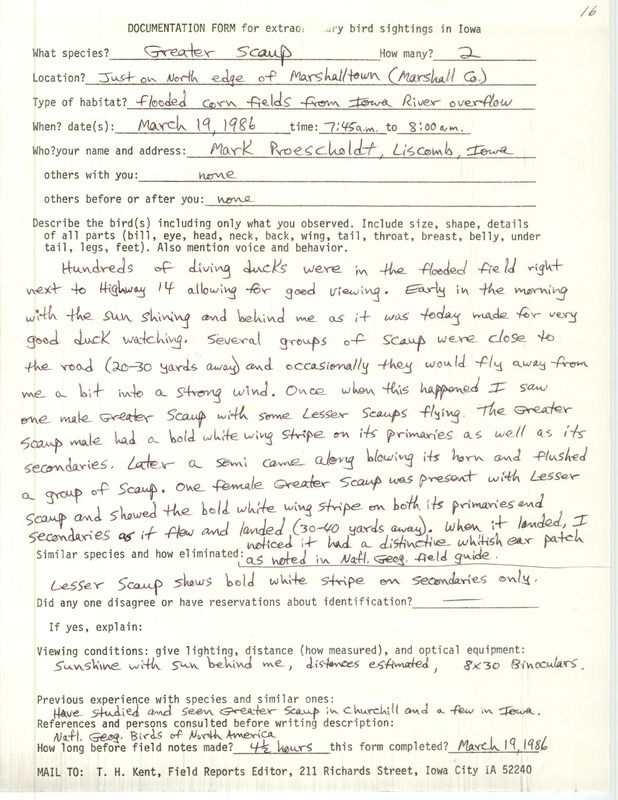 16
DOCUMENTATION FORM for extrao ary bird sightings in Iowa
What species? Greater Scaup How many? 2
Location? Just on North edge of Marshalltown (Marshall Co.)
Type of habitat? flooded corn fields from Iowa River overflow
When? date(s): March 19, 1986 time: 7:45a.m. to 8:00 a.m.
Who?your name and address: Mark Proescholdt, Liscomb, Iowa
others with you: none
others before or after you: none
Describe the bird(s) including only what you observed. Include size, shape, details
of all parts (bill, eye, head, neck, back, wing, tail, throat, breast, belly, under
tail, legs, feet). Also mention voice and behavior.
Hundreds of diving ducks were in the flooded field right
next to Highway 14 allowing for good viewing. Early in the morning
with the sun shining and behind me as it was today made for very
good duck watching. Several groups of Scaup were close to
the road (20-30 yards away) and occasionally they would fly away from
me a bit into a strong wind. Once when this happened I saw
one male Greater Scaup with some Lesser Scaups flying. The Greater
Scaup male had a bold white wing stripe on its primaries as well as its
secondaries. Later a semi came along blowing its horn and flushed
a group of Scaup. One female Greater Scaup was present with Lesser
Scaup and showed the bold white wing stripe on both its primaries and
secondaries as it flew and landed (30-40 yards away). When it landed, I
noticed it had a distinctive whitish ear patch
Similar species and how eliminated: as noted in Natl. Geog. field guide.
Lesser Scaup shows bold white stripe on secondaries only.
Did any one disagree or have reservations about identification?
If yes, explain:
Viewing conditions: give lighting, distance (how measured), and optical equipment:
Sunshine with sun behind me, distances estimated, 8x30 Binoculars.
Previous experience with species and similar ones:
Have studied and seen Greater Scaup in Churchill and a few in Iowa.
References and persons consulted before writing description:
Natl. Geog. Birds of North America
How long before field notes made? 4½ hours this form completed? March 19, 1986
MAIL TO: T. H. Kent, Field Reports Editor, 211 Richards Street, Iowa City IA 52240